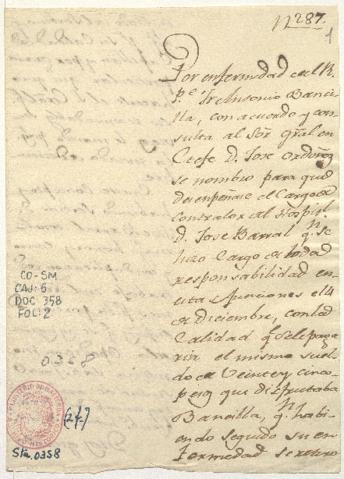 N 287.
1
Por enfermedad del R.
P.e Fr Antonio Banci-
lla, con acuerdo y con-
sulta al Sor Gral en
Gefe D. Jose Ordoñez
se nombro para que
desempeñase el Cargo de
Contralor del Hospital
D. Jose Barral qn se
hizo Cargo de toda
responsabilidad en
esta funciones el 4
de diciembre, con la
Calidad q Se le paga-
ria el mismo suel-
do de Veinte y cinco
pesos que disfrutaba
Bancilla, qn habi-
endo seguido su en-
fermedad se retiro
CO-SM
CAJ: 6
DOC 358
FOL: 2
0358
(2f.)
Sta. 0358